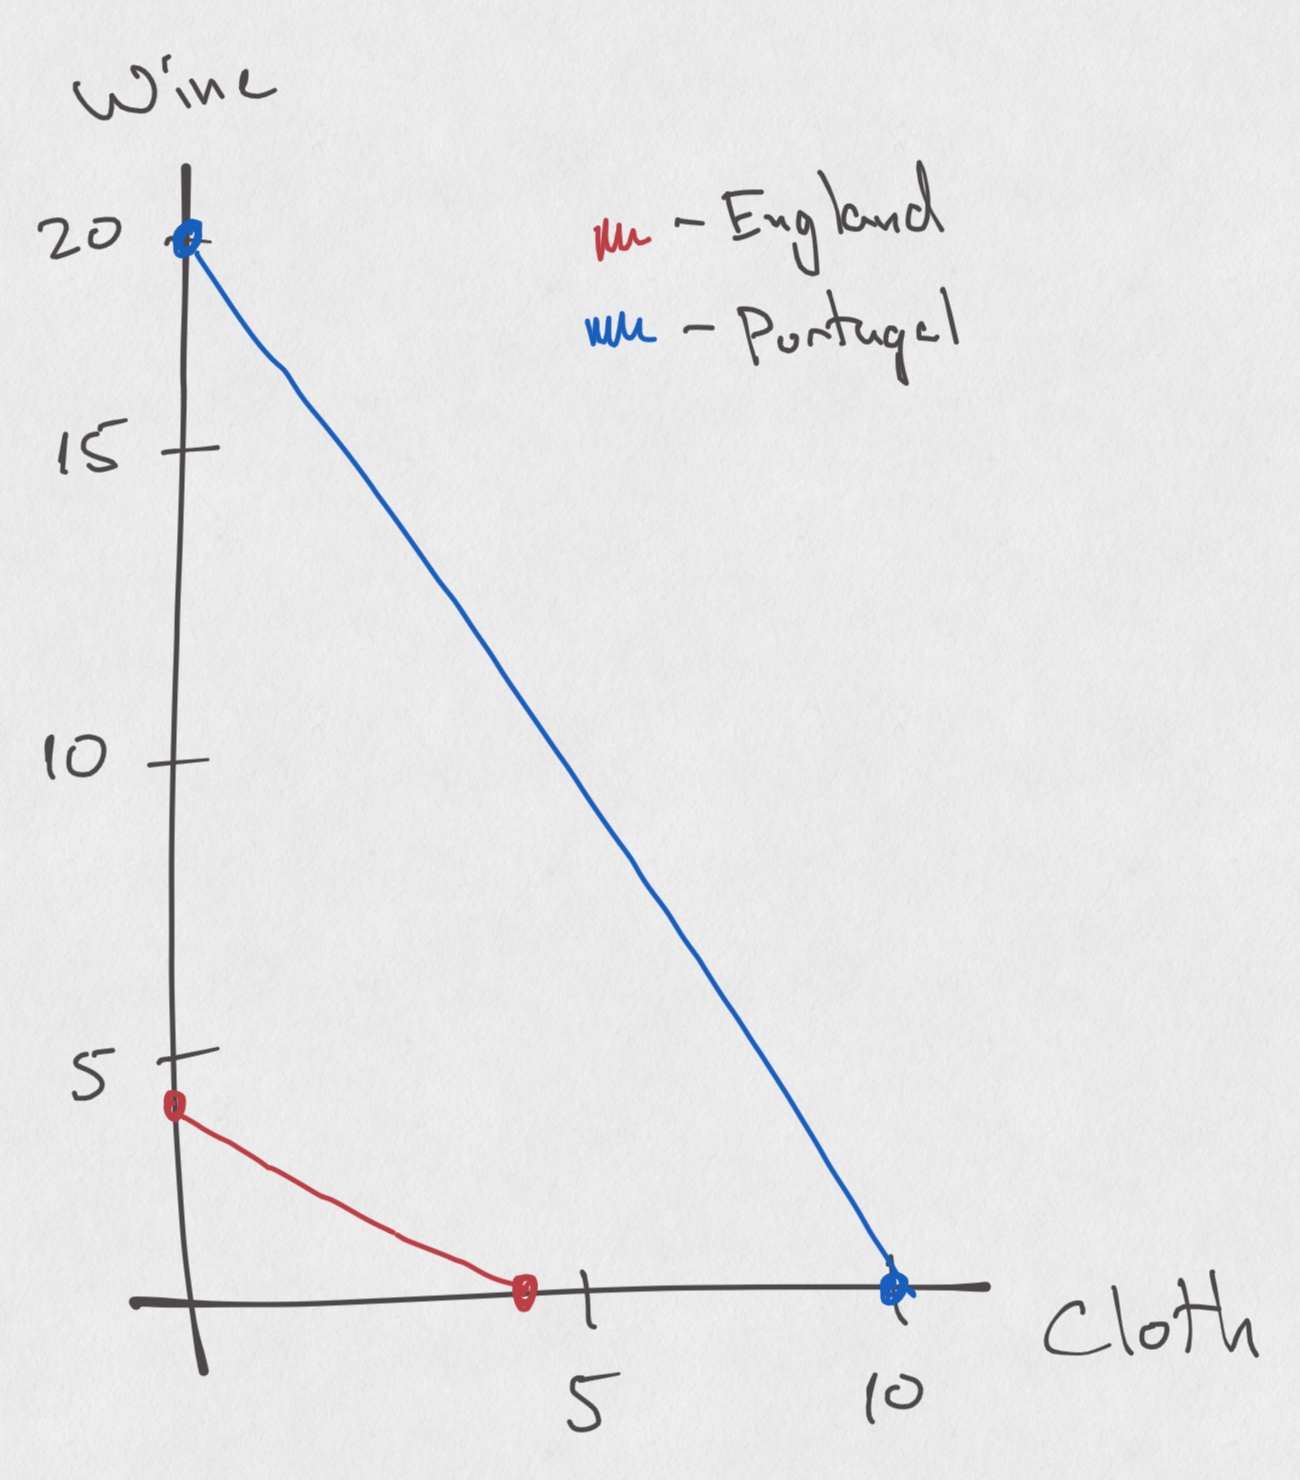 Wine
20
- England
- Portugal
15
10
5
5
10
Cloth